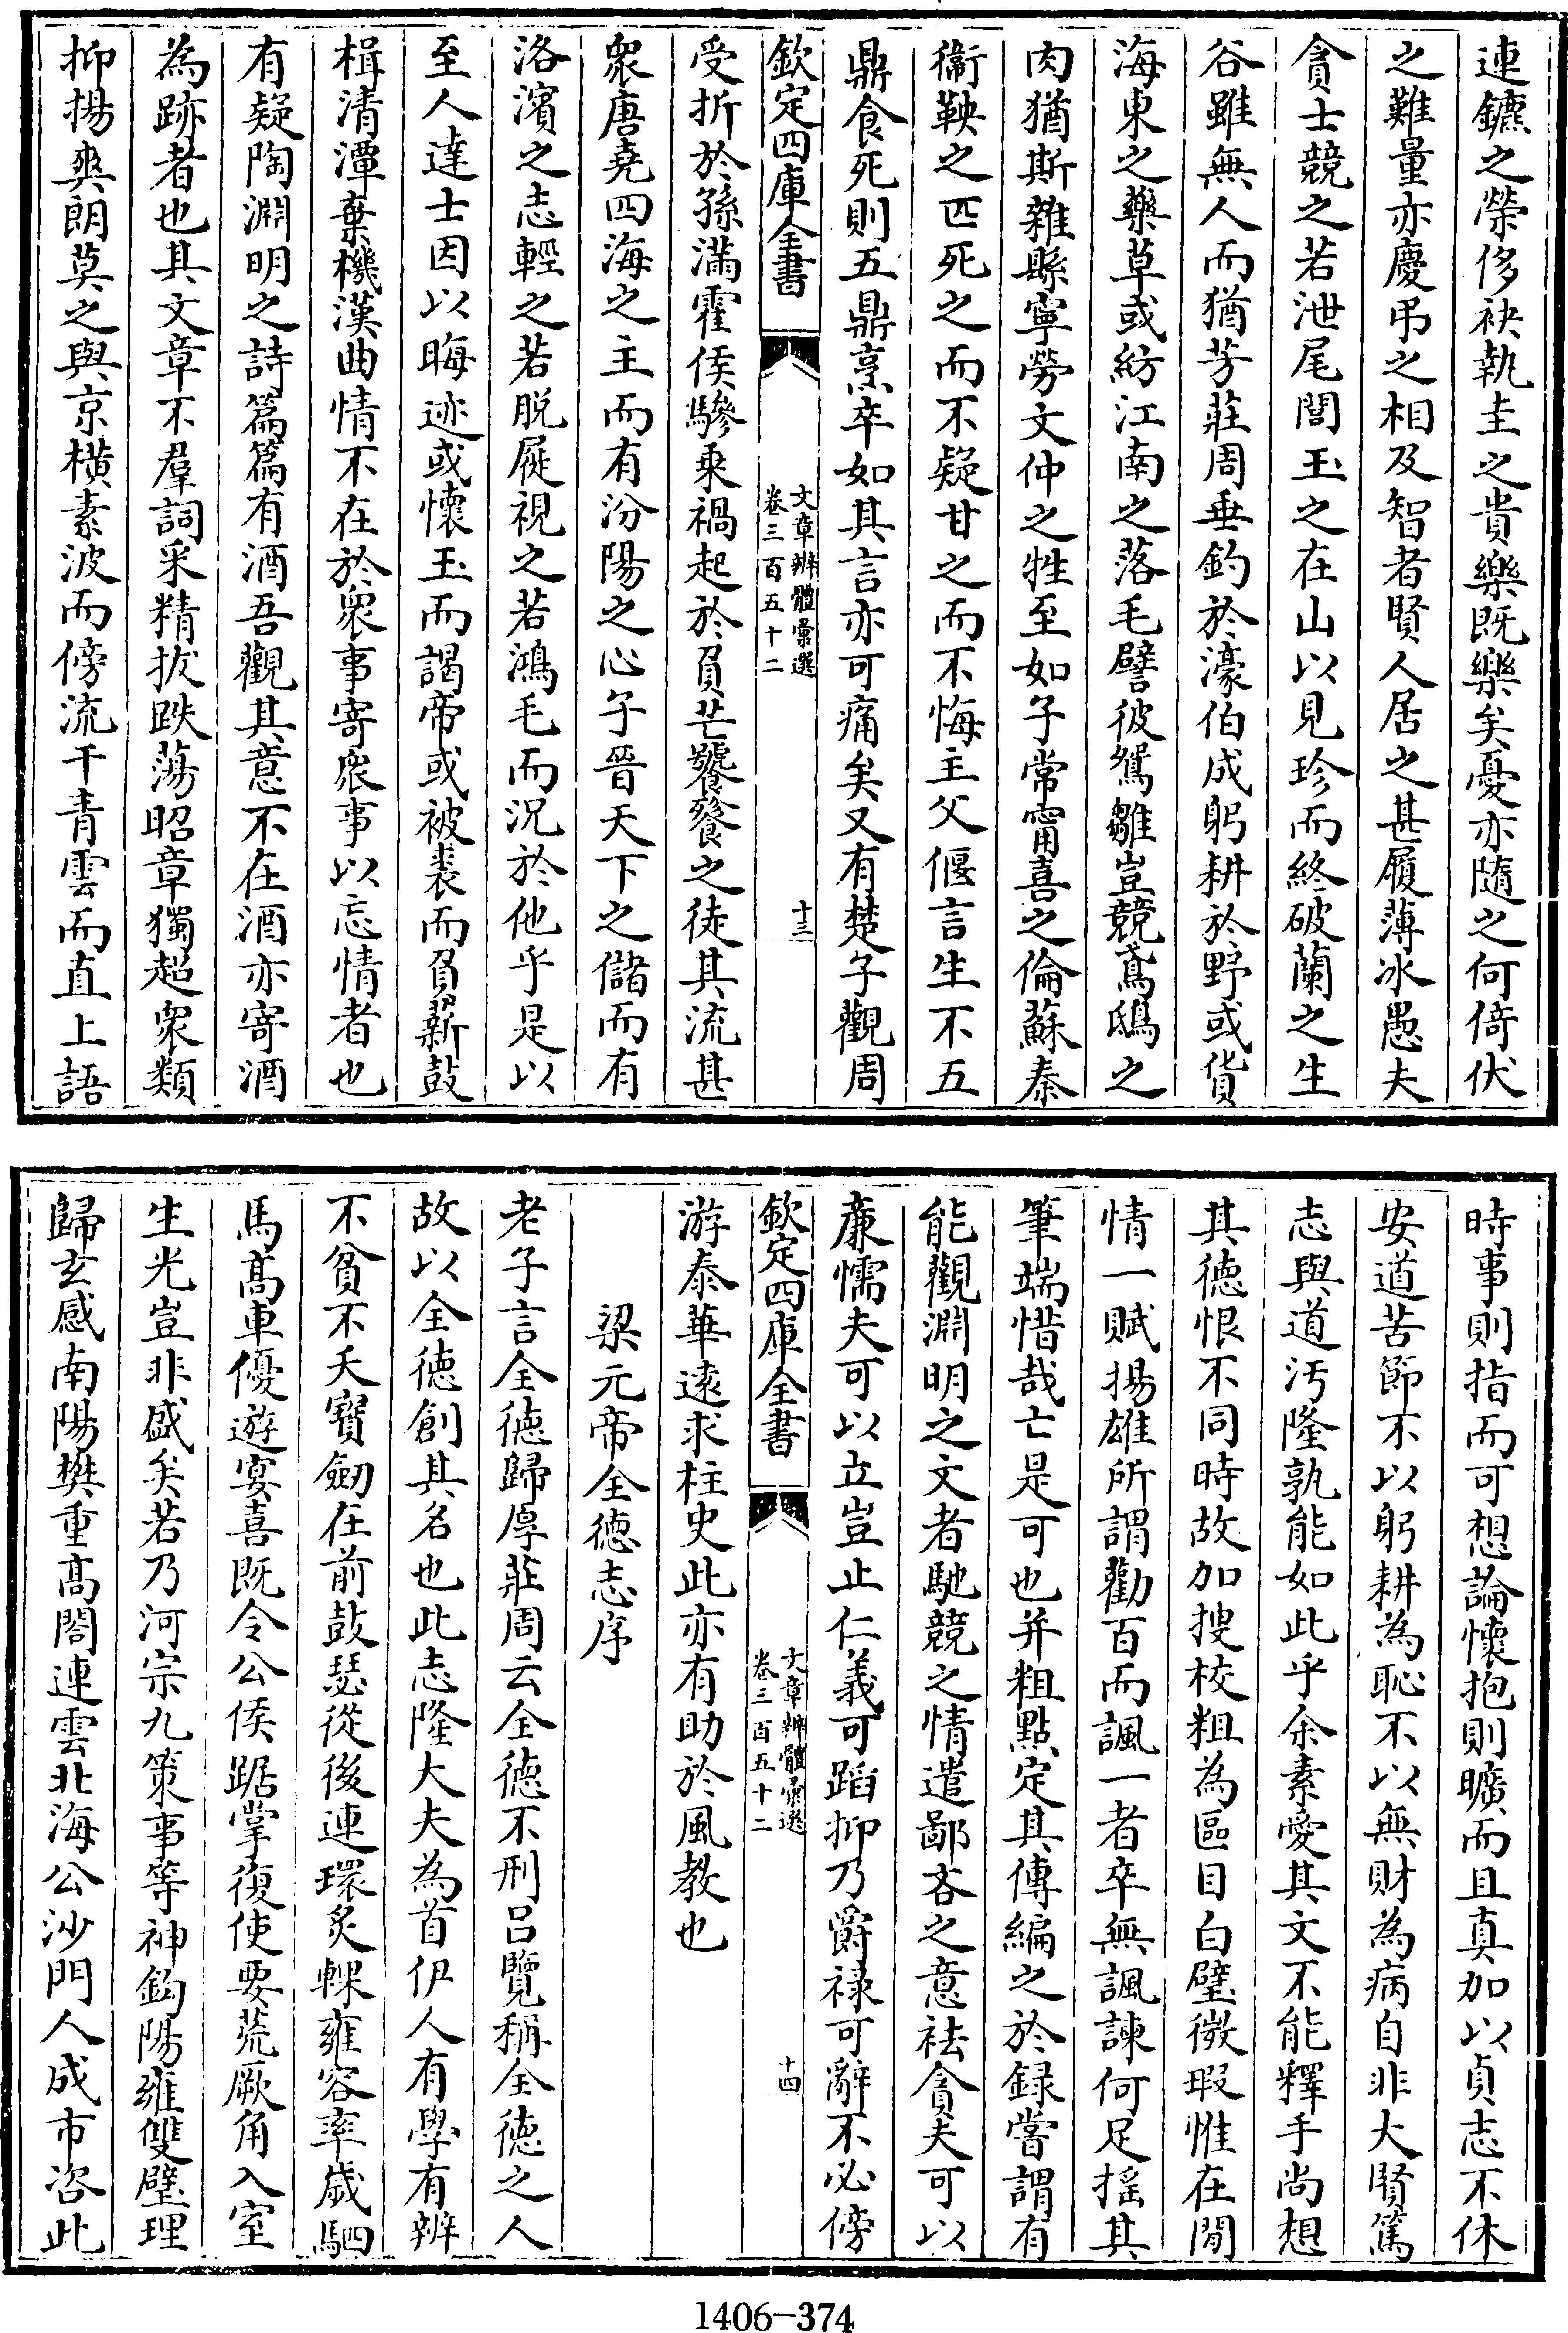 連鑣之榮侈袂執圭之貴樂既樂矣憂亦隨之何倚伏
之難量亦慶弔之相及智者賢人居之甚履薄冰愚夫
貪士競之若泄尾閭玉之在山以見珍而終破蘭之生
谷雖無人而猶芳莊周垂釣於濠伯成躬耕於野或貨
海東之藥草或紡江南之落毛譬彼鴛雛豈競鳶鴟之
肉猶斯雜縣寧勞文仲之牲至如子常甯喜之倫蘇秦
衞鞅之匹死之而不疑甘之而不悔主父偃言生不五
鼎食死則五鼎烹卒如其言亦可痛矣又有楚子觀周
欽定四庫全書
文章辨體彙選
卷三百五十二
十三
受折於孫滿霍侯驂乗禍起於負芒饕餮之徒其流甚
衆唐堯四海之主而有汾陽之心子晉天下之儲而有
洛濱之志輕之若脱屣視之若鴻毛而況於他乎是以
至人達士因以晦迹或懷玉而謁帝或被裘而負薪鼓
楫清潭棄機漢曲情不在於衆事寄衆事以忘情者也
有疑陶淵明之詩篇篇有酒吾觀其意不在酒亦寄酒
為跡者也其文章不羣詞采精拔跌蕩昭章獨超衆類
抑揚爽朗莫之與京橫素波而傍流干青雲而直上語
時事則指而可想論懷抱則曠而且真加以貞志不休
安道苦節不以躬耕為恥不以無財為病自非大賢篤
志與道汚隆孰能如此乎余素愛其文不能釋手尚想
其徳恨不同時故加搜校粗為區目白璧微瑕惟在閒
情一賦揚雄所謂勸百而諷一者卒無諷諫何足揺其
筆端惜哉亡是可也并粗點定其傳編之於録嘗謂有
能觀淵明之文者馳競之情遣鄙吝之意袪貪夫可以
廉懦夫可以立豈止仁義可蹈抑乃爵禄可辭不必傍
欽定四庫全書
文章辨體彙選
卷三百五十二
十四
游泰華遠求柱史此亦有助於風教也
梁元帝全徳志序
老子言全徳歸厚莊周云全徳不刑吕覽稱全徳之人
故以全徳創其名也此志隆大夫為首伊人有學有辨
不貧不夭寳劒在前鼓瑟從後連環炙輠雍容卒歳駟
馬髙車優遊宴喜既令公侯踞掌復使要荒厥角入室
生光豈非盛矣若乃河宗九策事等神鈎陽雍雙璧理
歸玄感南陽樊重髙閣連雲北海公沙門人成市咨此
1406-374